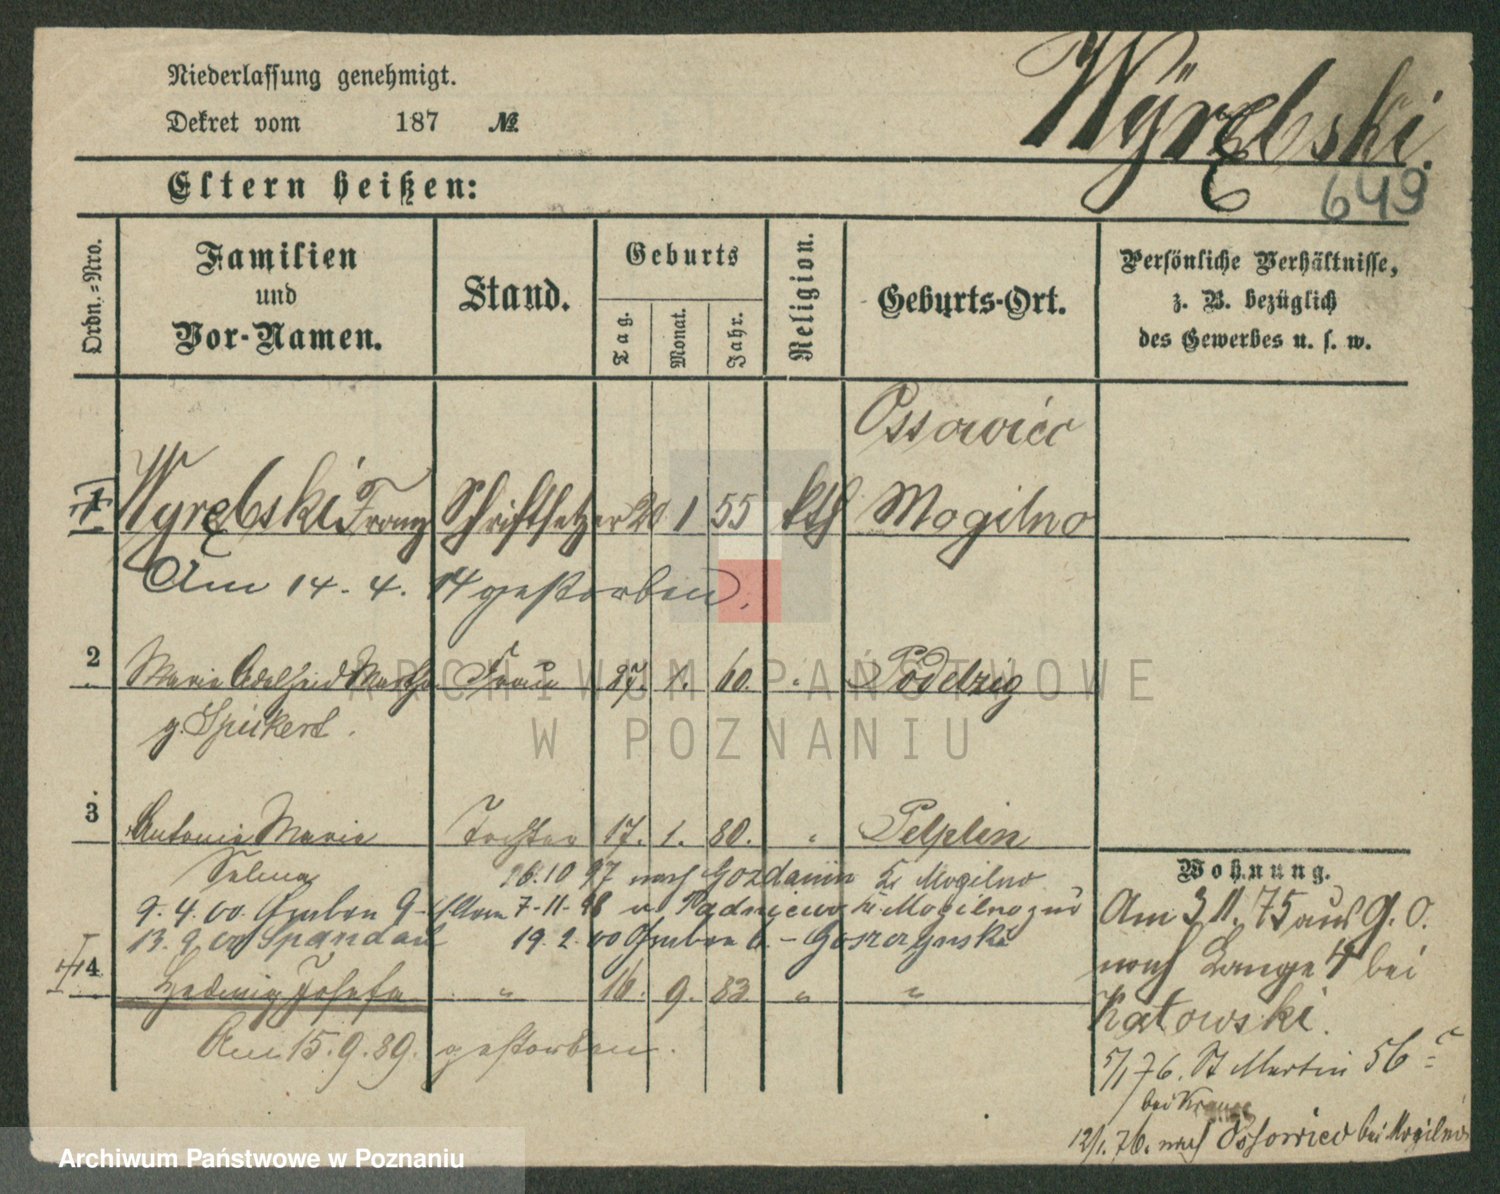 Niederlassung genehmigt.
Dekret vom 187 №
Wyrębski.
649
Eltern heißen:
Ordn.=Nro.
Familien
und
Vor-Namen.
Stand.
Geburts
Tag.
Monat.
Jahr.
Religion.
Geburts-Ort.
Persönliche Verhältnisse,
z. B. bezüglich
des Gewerbes u. s. w.
Ossowiec
1 Wyrębski Franz Schriftsetzer 20 1 55 kth Mogilno
Am 14. 4. 14 gestorben.
2 Maria Adelheid Martha Frau 27. 1. 60. " Podelzig
g. Spickert.
3 Antonie Marie Tochter 17. 1. 80. " Pelplin
Selma 26.10 97 nach Gozdanin Kr Mogilno
9. 4. 00. Graben 9 7-11-98 v. Padniewo Kr Mogilno
13. 9. 00 Spandau 19. 2. 00 Graben 6 - Goszczynski
4 Hedwig Josefa " 16. 9. 83 " "
Am 15. 9. 89. gestorben.
Wohnung.
Am 3 11. 75 aus G. O.
nach Lange 4 bei
Katowski.
5/1 76. St Martin 56
bei Krause
12/1. 76. nach Ossowiec bei Mogilno
ARCHIWUM PAŃSTWOWE
W POZNANIU
Archiwum Państwowe w Poznaniu